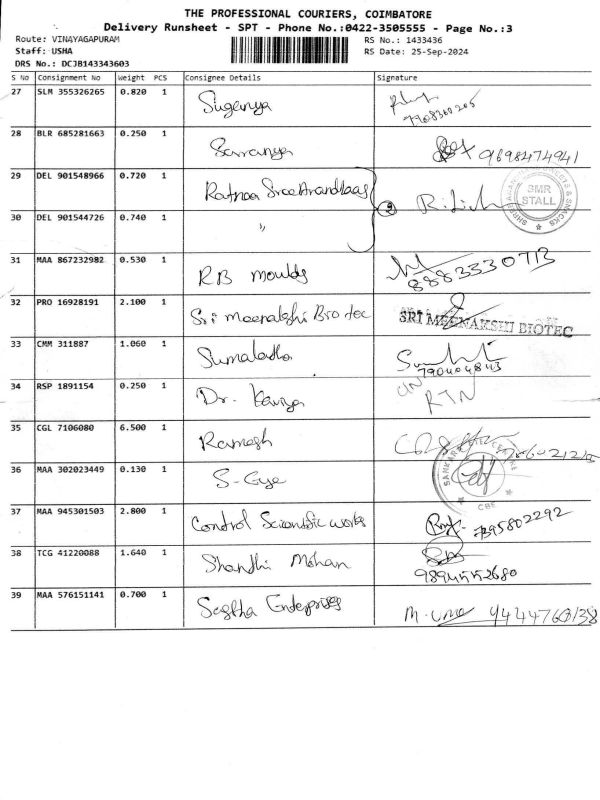 THE PROFESSIONAL COURIERS, COIMBATORE
Delivery Runsheet - SPT - Phone No.:0422-3505555 - Page No.:3
Route: VINAYAGAPURAM RS No.: 1433436
Staff: USHA RS Date: 25-Sep-2024
DRS No.: DCJB143343603
S No Consignment No Weight PCS Consignee Details Signature
27 SLM 355326265 0.820 1 Suganya
7908360205
28 BLR 685281663 0.250 1 Saranya 9698474941
29 DEL 901548966 0.720 1 Ratnaa Sree Anandhaas
2
SMR STALL
30 DEL 901544726 0.740 1 "
31 MAA 867232982 0.530 1 RB moulds 8883530713
32 PRO 16928191 2.100 1 Sri meenakshi Bio tec SRI MEENAKSHI BIOTEC
33 CMM 311887 1.060 1 Sumaladha
34 RSP 1891154 0.250 1 Dr. Kaviya RTN
35 CGL 7106080 6.500 1 Ramesh
36 MAA 302023449 0.130 1 S-Gye SANKARA EYE CENTRE CBE
37 MAA 945301503 2.800 1 Control Scientific works 7395802292
38 TCG 41220088 1.640 1 Shandhi Mohan
39 MAA 576151141 0.700 1 Sastha Enterprises M. Uma 9444760138